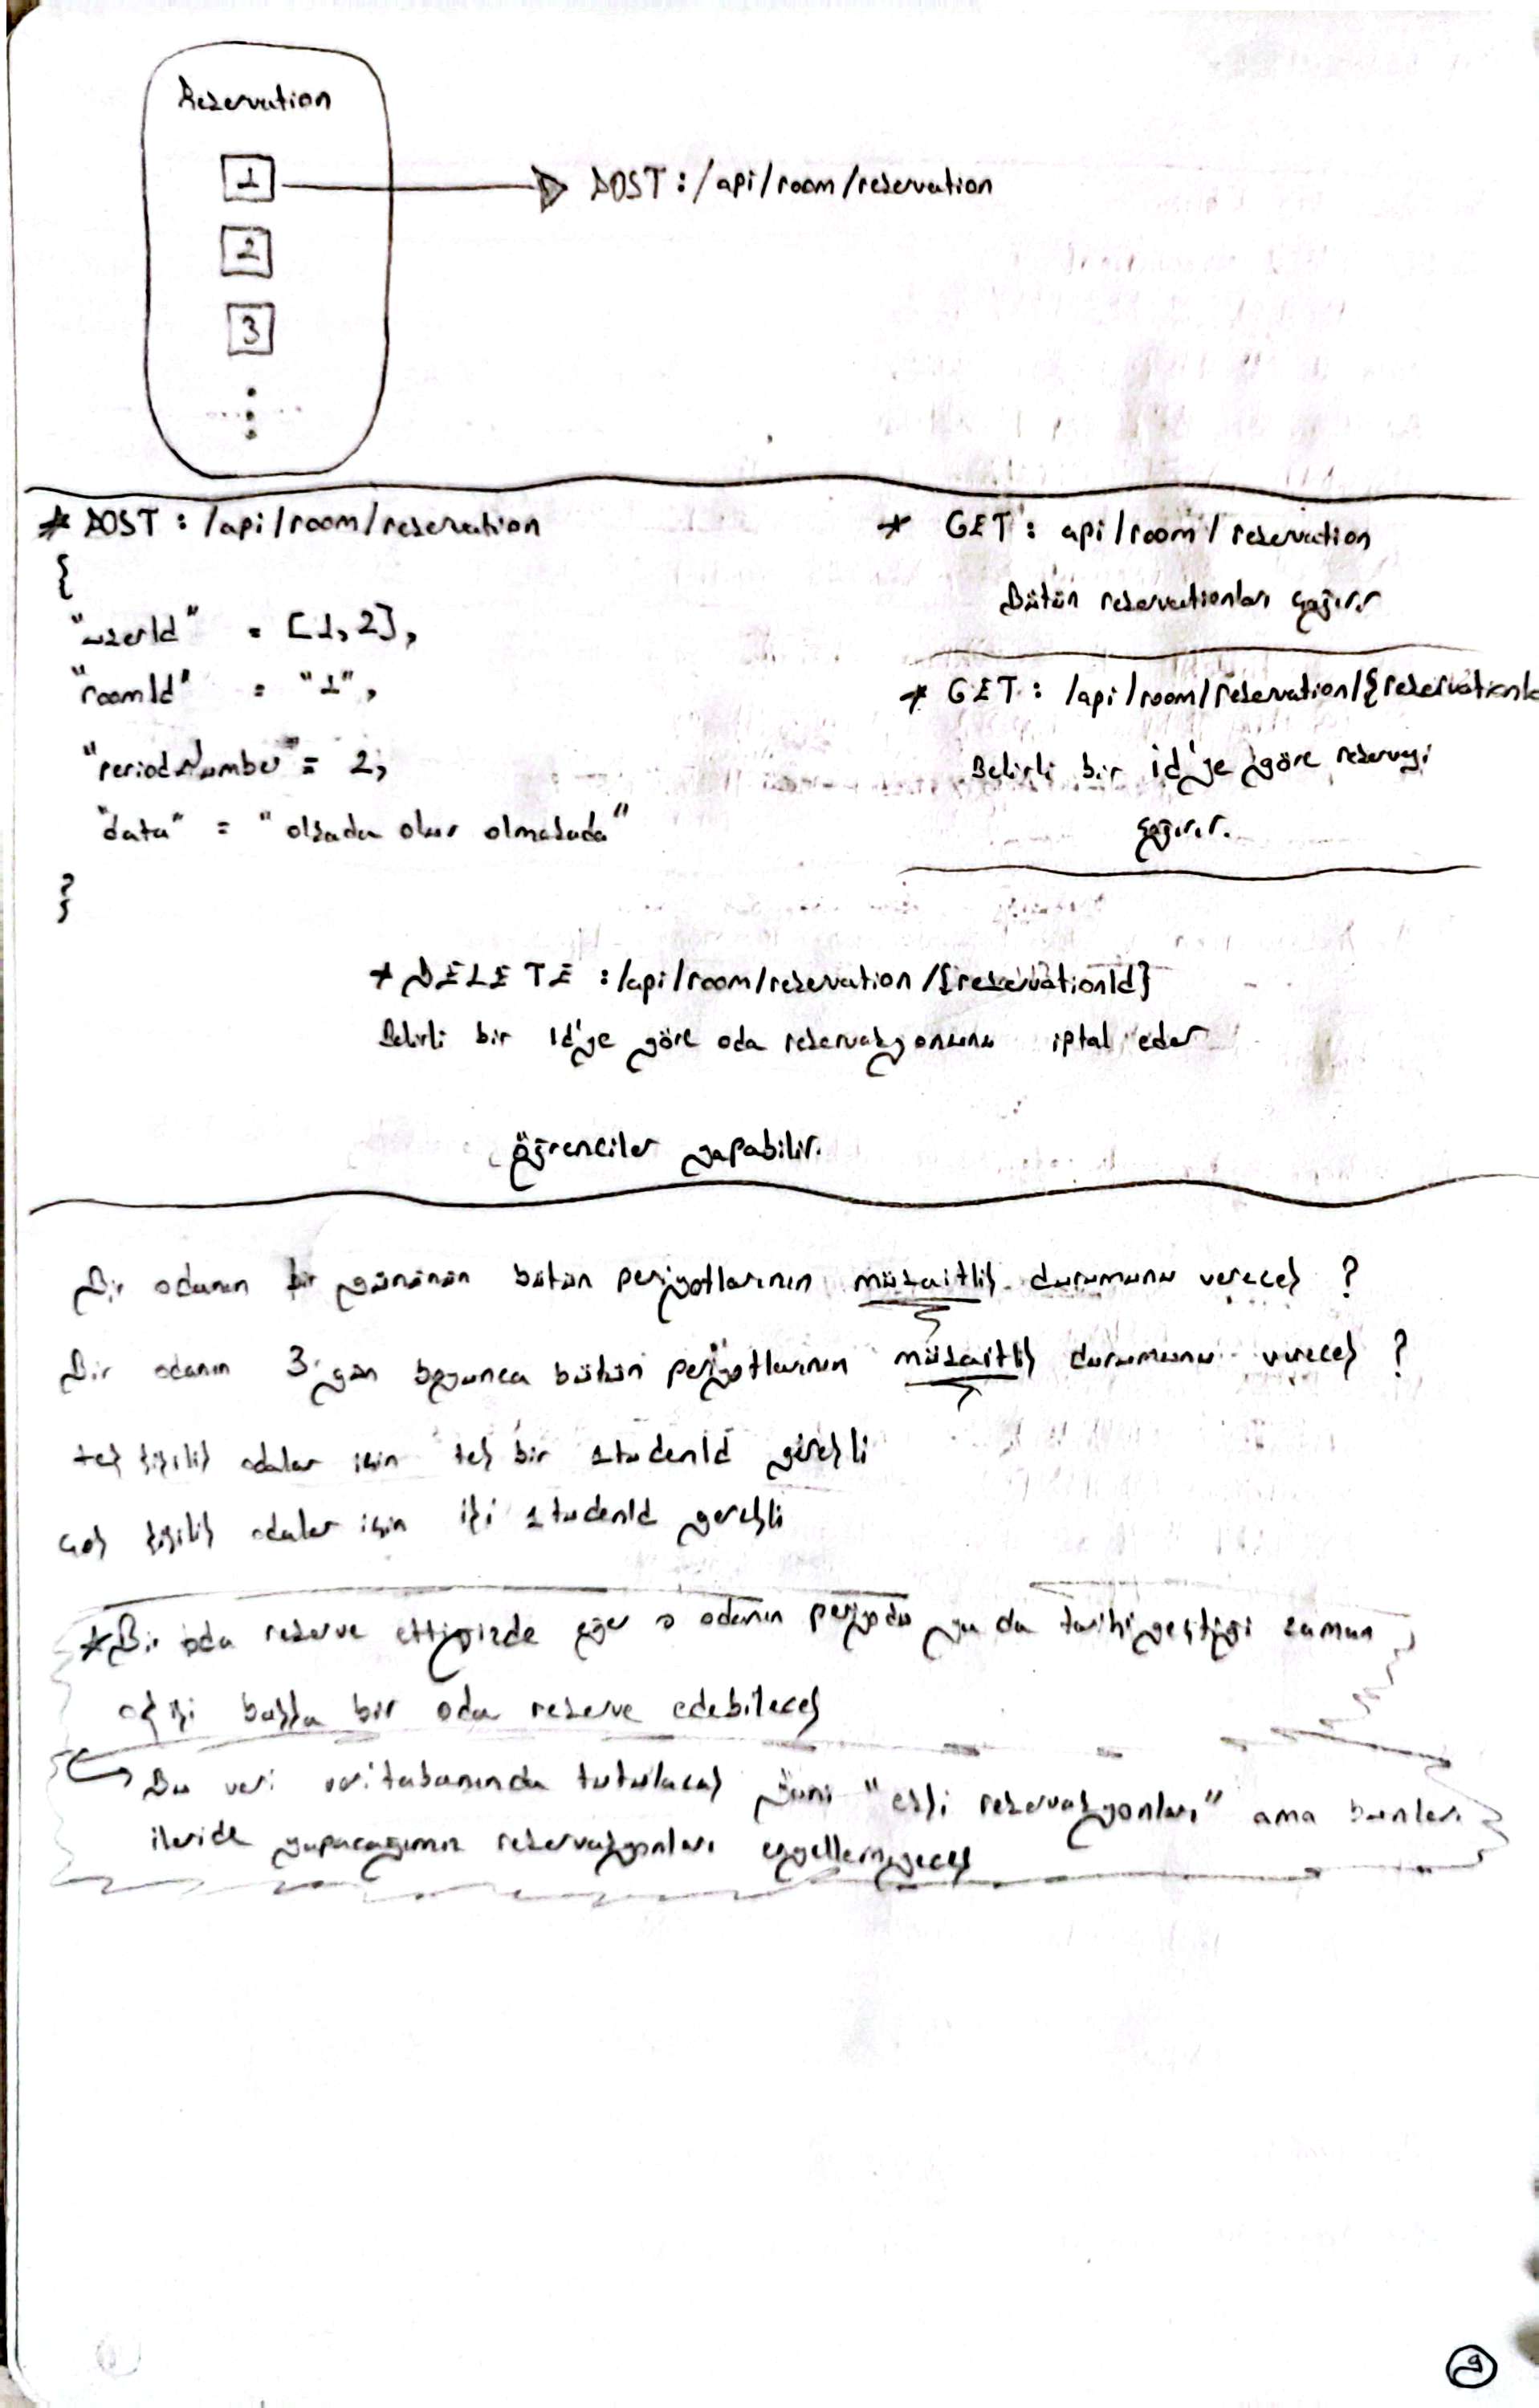 Rezervation
1
POST : /api/room/rezervation
2
3
* POST : /api/room/rezervation
{
"userId" = [1, 2],
"roomId" = "1",
"periodNumber" = 2,
"data" = "olsada olur olmasada"
}
* GET : api/room/rezervation
Bütün rezervationları çağırır
* GET : /api/room/rezervation/{rezervationId
Belirli bir id'ye göre rezerveyi
çağırır.
* DELETE : /api/room/rezervation/{rezervationId}
Belirli bir id'ye göre oda rezervasyonunu iptal eder
öğrenciler yapabilir.
Bir odanın bir gününün bütün periyotlarının müsaitlik durumunu verecek ?
Bir odanın 3 gün boyunca bütün periyotlarının müsaitlik durumunu verecek ?
tek kişilik odalar için tek bir studenId gerekli
çok kişilik odalar için iki studenId gerekli
* Bir oda rezerve ettiğizde eğer o odanın periyodu ya da tarihi geçtiği zaman
kişi başka bir oda rezerve edebilecek
Bu veri veritabanında tutulacak yani "eski rezervasyonları" ama bunları
ileride yapacağımız rezervasyonları engellemeyecek
9